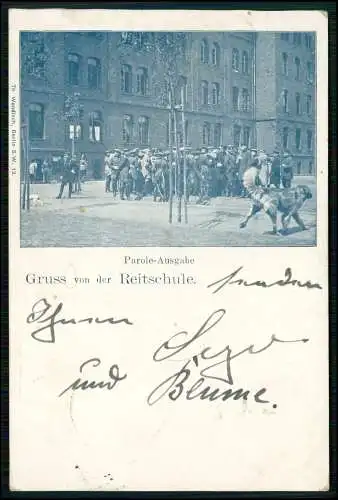 Th. Wendisch, Berlin S.W. 12.
Parole-Ausgabe
Gruss von der Reitschule.
senden
Ihnen
und Blume.